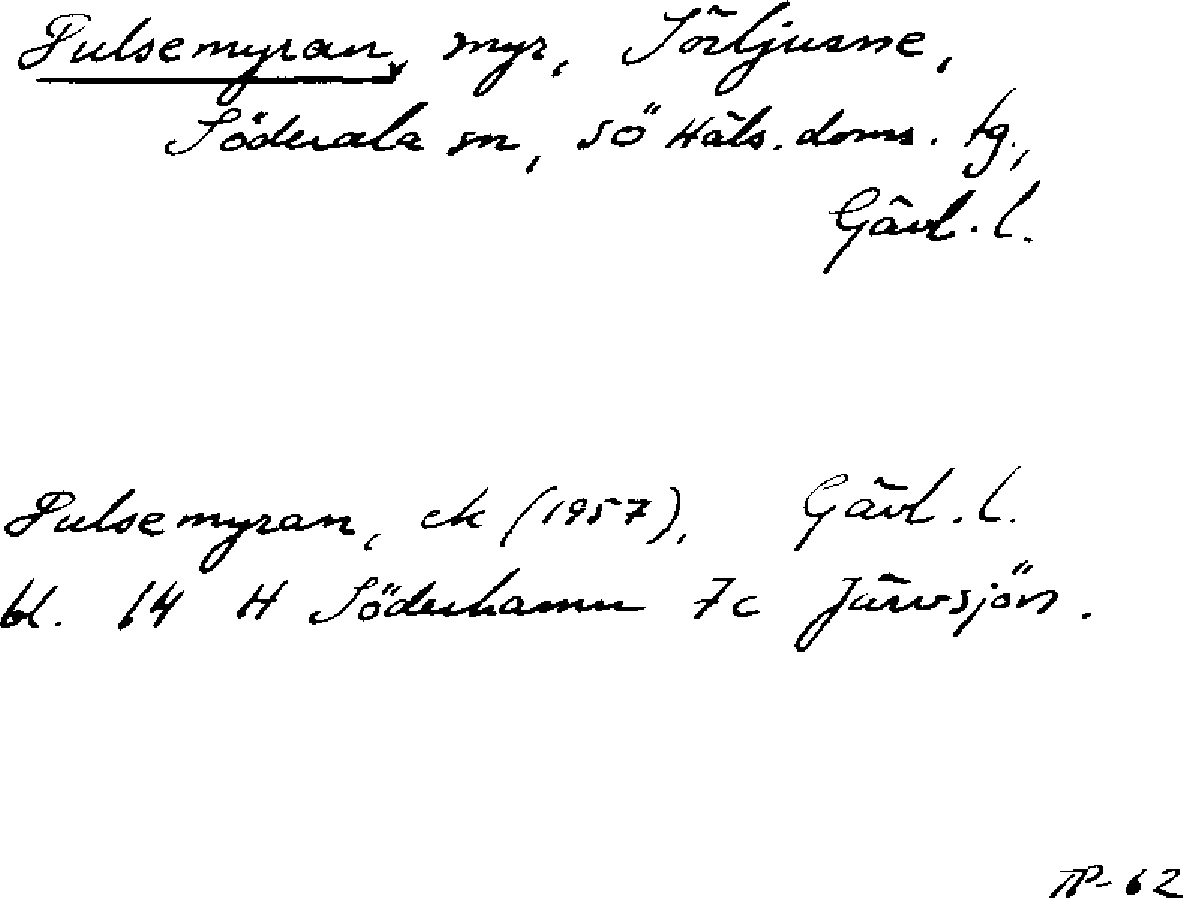 Pulsemyran, myr, Sörljusne,
Söderala sn, sö Häls. doms. tg.,
Gävl. l.
Pulsemyran, ek (1957), Gävl. l.
bl. 14 H Söderhamn 7c Järvsjön.
-62